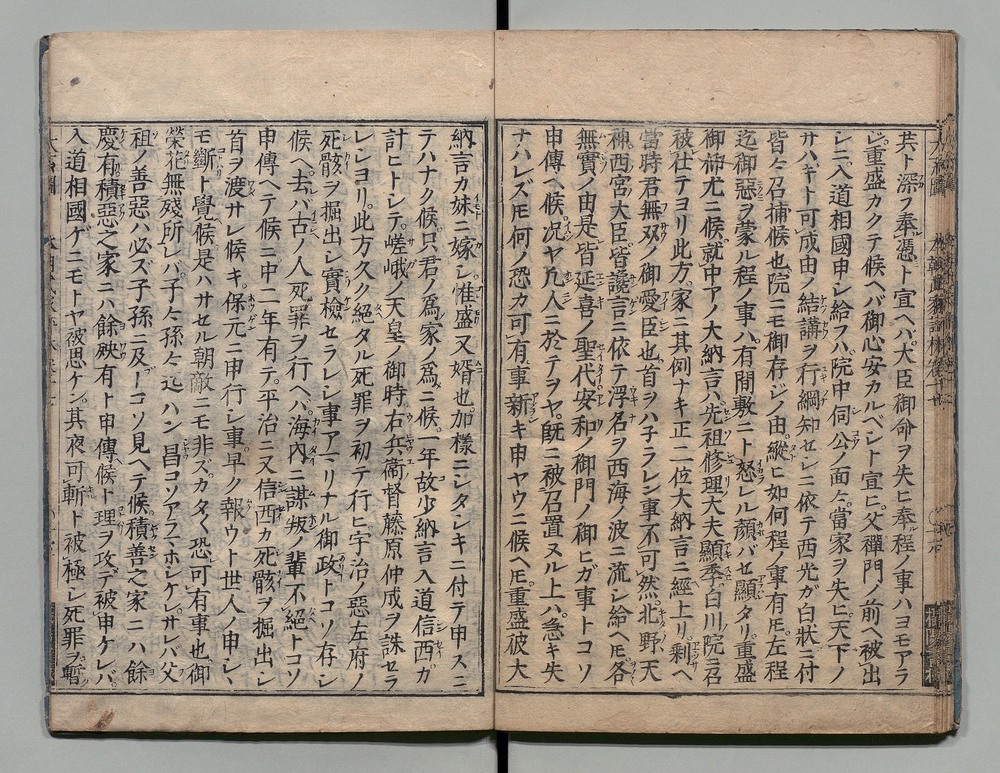 共ト深ク奉憑ト宣ヘハ大臣御命ヲ失ヒ奉ル程ノ事ハヨモアラ
ジ重盛カクテ候ヘバ御心安カルベシト宣ヒ父禪門ノ前ヘ被出
シニ入道相國申シ給フハ院中伺公ノ面々當家ヲ失ヒ天下ノ
サハキト可成由ノ結講ヲ行綱知セシニ依テ西光ガ白狀ニ付
皆々召捕候也院ニモ御存ジノ由縱ヒ如何程ノ事有圧左程
迄御惡ヲ蒙ル程ノ事ハ有間敷ニト怒レル顔バセ顯タリ重盛
御尤ニ候就中アノ大納言ハ先祖修理大夫顯季白川院ニ召
被仕テヨリ此方家ニ其例ナキ正二位大納言ニ經上リ剩ヘ
當時君無双ノ御愛臣也首ヲハ子ラレン事不可然北野天
神西宮大臣皆讒言ニ依テ浮名ヲ西海ノ波ニ流シ給ヘ圧各
無實ノ由是皆延喜ノ聖代安和ノ御門ノ御ヒガ事トコソ
申傳ヘ候况ヤ凡人ニ於テヲヤ既ニ被召置ヌル上ハ急キ失
ナハレズ圧何ノ恐カ可有事新キ申ヤウニ候ヘ圧重盛彼大
納言カ妹ニ嫁シ惟盛又婿也加樣ニシタシキニ付テ申スニ
テハナク候只君ノ爲家ノ爲ニ候一年故少納言入道信西カ
計ヒトシテ嵯峨ノ天皇ノ御時右兵衞督藤原仲成ヲ誅セラ
レシヨリ此方久ク絕タル死罪ヲ初テ行ヒ宇治ノ惡左府ノ
死骸ヲ掘出シ實檢セラレシ事アマリナル御政トコソ存シ
候ヘ去バ古ノ人死罪ヲ行ヘバ海內ニ謀叛ノ輩不絕トコソ
申傳ヘテ候ニ中二年有テ平治ニ又信西カ死骸ヲ掘出シ
首ヲ渡サレ候キ保元ニ申行シ事早ク報ウト世人ノ申シ
モ斷ト覺候是ハサセル朝敵ニモ非ズカタ〱恐可有事也御
榮花無殘所レバ子々孫々迄ハン昌コソアラマホシケレサレバ父
祖ノ善惡ハ必ズ子孫ニ及ブトコソ見ヘテ候積善之家ニハ餘
慶有積惡之家ニハ餘殃有ト申傳候ト理ヲ攻デ被申ケレバ
入道相國ゲニモトヤ被思ケン其夜可斬ト被極シ死罪ヲ暫